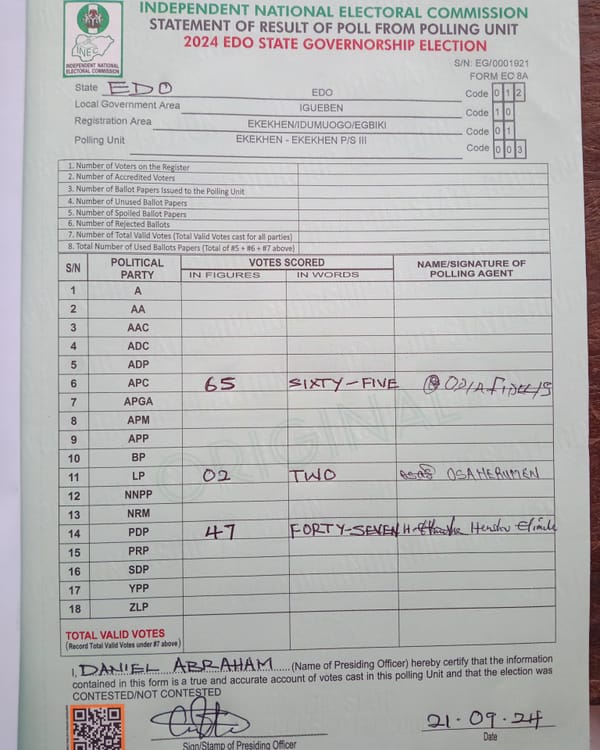 INDEPENDENT NATIONAL ELECTORAL COMMISSION
STATEMENT OF RESULT OF POLL FROM POLLING UNIT
2024 EDO STATE GOVERNORSHIP ELECTION
INEC
INDEPENDENT NATIONAL
ELECTORAL COMMISSION
S/N: EG/0001921
FORM EC 8A
State EDO EDO Code 0 1 2
Local Government Area IGUEBEN Code 1 0
Registration Area EKEKHEN/IDUMUOGO/EGBIKI Code 0 1
Polling Unit EKEKHEN - EKEKHEN P/S III Code 0 0 3
1. Number of Voters on the Register
2. Number of Accredited Voters
3. Number of Ballot Papers Issued to the Polling Unit
4. Number of Unused Ballot Papers
5. Number of Spoiled Ballot Papers
6. Number of Rejected Ballots
7. Number of Total Valid Votes (Total Valid Votes cast for all parties)
8. Total Number of Used Ballots Papers (Total of #5 + #6 + #7 above)
S/N POLITICAL PARTY VOTES SCORED NAME/SIGNATURE OF POLLING AGENT
IN FIGURES IN WORDS
1 A
2 AA
3 AAC
4 ADC
5 ADP
6 APC 65 SIXTY-FIVE ODIA FIDELIS
7 APGA
8 APM
9 APP
10 BP
11 LP 02 TWO OSAMERUMEN
12 NNPP
13 NRM
14 PDP 47 FORTY-SEVEN
15 PRP
16 SDP
17 YPP
18 ZLP
ORIGINAL
TOTAL VALID VOTES
(Record Total Valid Votes under #7 above)
I, DANIEL ABRAHAM (Name of Presiding Officer) hereby certify that the information
contained in this form is a true and accurate account of votes cast in this polling Unit and that the election was
CONTESTED/NOT CONTESTED
21.09.24
Sign/Stamp of Presiding Officer Date